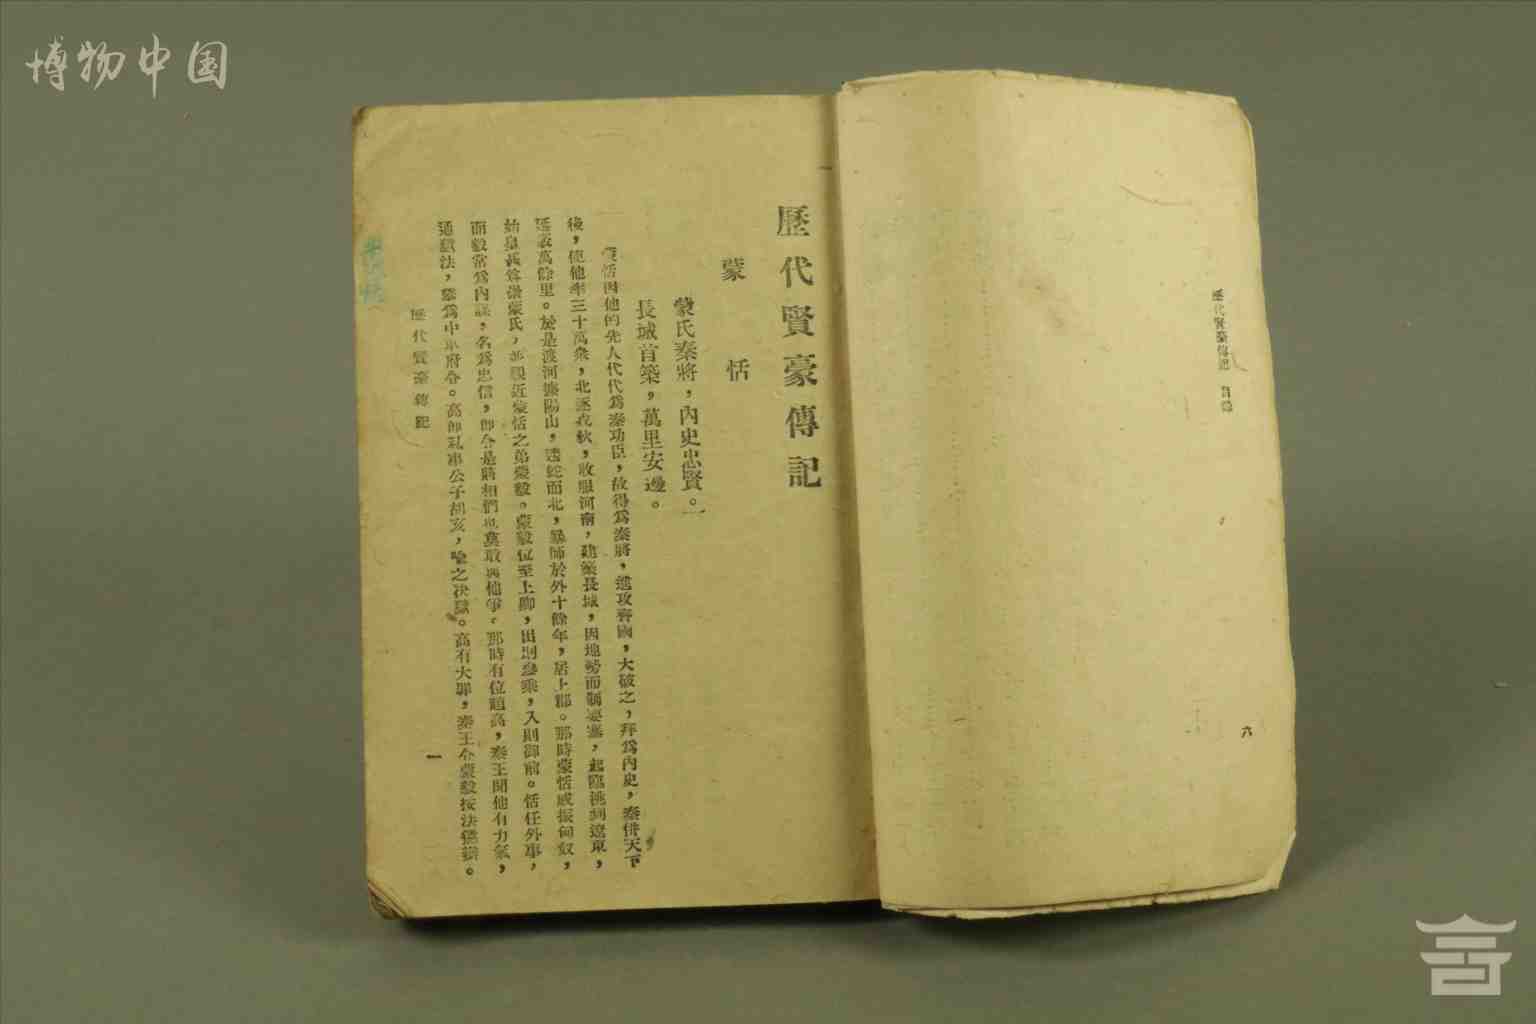 博物中国
歷代賢豪傳記 目錄
六
歷代賢豪傳記
蒙恬
蒙氏秦將，內史忠賢。
長城首築，萬里安邊。
蒙恬因他的先人代代為秦功臣，故得為秦將，進攻齊國，大破之，拜為內史，秦併天下
後，使他率三十萬衆，北逐戎狄，收服河南，建築長城，因地勢而制要塞，起臨洮到遼東，
延袤萬餘里。於是渡河據陽山，逶蛇而北，暴師於外十餘年，居上郡。那時蒙恬威振匈奴，
始皇甚尊崇蒙氏，並親近蒙恬之弟蒙毅。蒙毅位至上卿，出則參乘，入則御前。恬任外事，
而毅常為內謀，名為忠信，即令是將相們也莫敢與他爭。那時有位趙高，秦王聞他有力氣，
通獄法，舉為中車府令。高即私事公子胡亥，喻之决獄。高有大罪，秦王令蒙毅按法懲辦。
歷代賢豪傳記
一